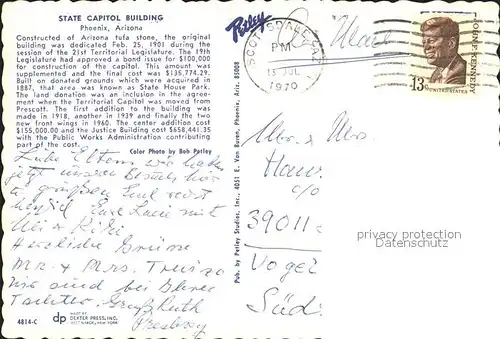 STATE CAPITOL BUILDING
Phoenix, Arizona
Constructed of Arizona tufa stone, the original
building was dedicated Feb. 25, 1901 during the
session of the 21st Territorial Legislature. The 19th
Legislature had approved a bond issue for $100,000
for construction of the capitol. This amount was
supplemented and the final cost was $135,774.29.
Built on donated grounds which were acquired in
1887, that area was known as State House Park.
The land donation was an inclusion in the agree-
ment when the Territorial Capitol was moved from
Prescott. The first addition to the building was
made in 1918, another in 1939 and finally the two
new front wings in 1960. The center addition cost
$155,000.00 and the Justice Building cost $658,441.35
with the Public Works Administration contributing
part of the cost.
Color Photo by Bob Petley
Liebe Eltern wir haben
jetzt unseren Besuch
grüßen Euch
Eure mit
Kiki
Herzliche Grüsse
Mr. & Mrs.
sind bei
Gruß Ruth
4814-C
dp
MADE BY
DEXTER PRESS, INC.
WEST NYACK, NEW YORK
Petley
Pub. by Petley Studios, Inc., 4051 E. Van Buren, Phoenix, Ariz. 85008
SCOTTSDALE, AZ
PM
13 JUL
1970
JOHN F. KENNEDY
13c
UNITED STATES
Mr. & Mrs.
Hans
c/o
39011
Vogel
Süd
privacy protection
Datenschutz